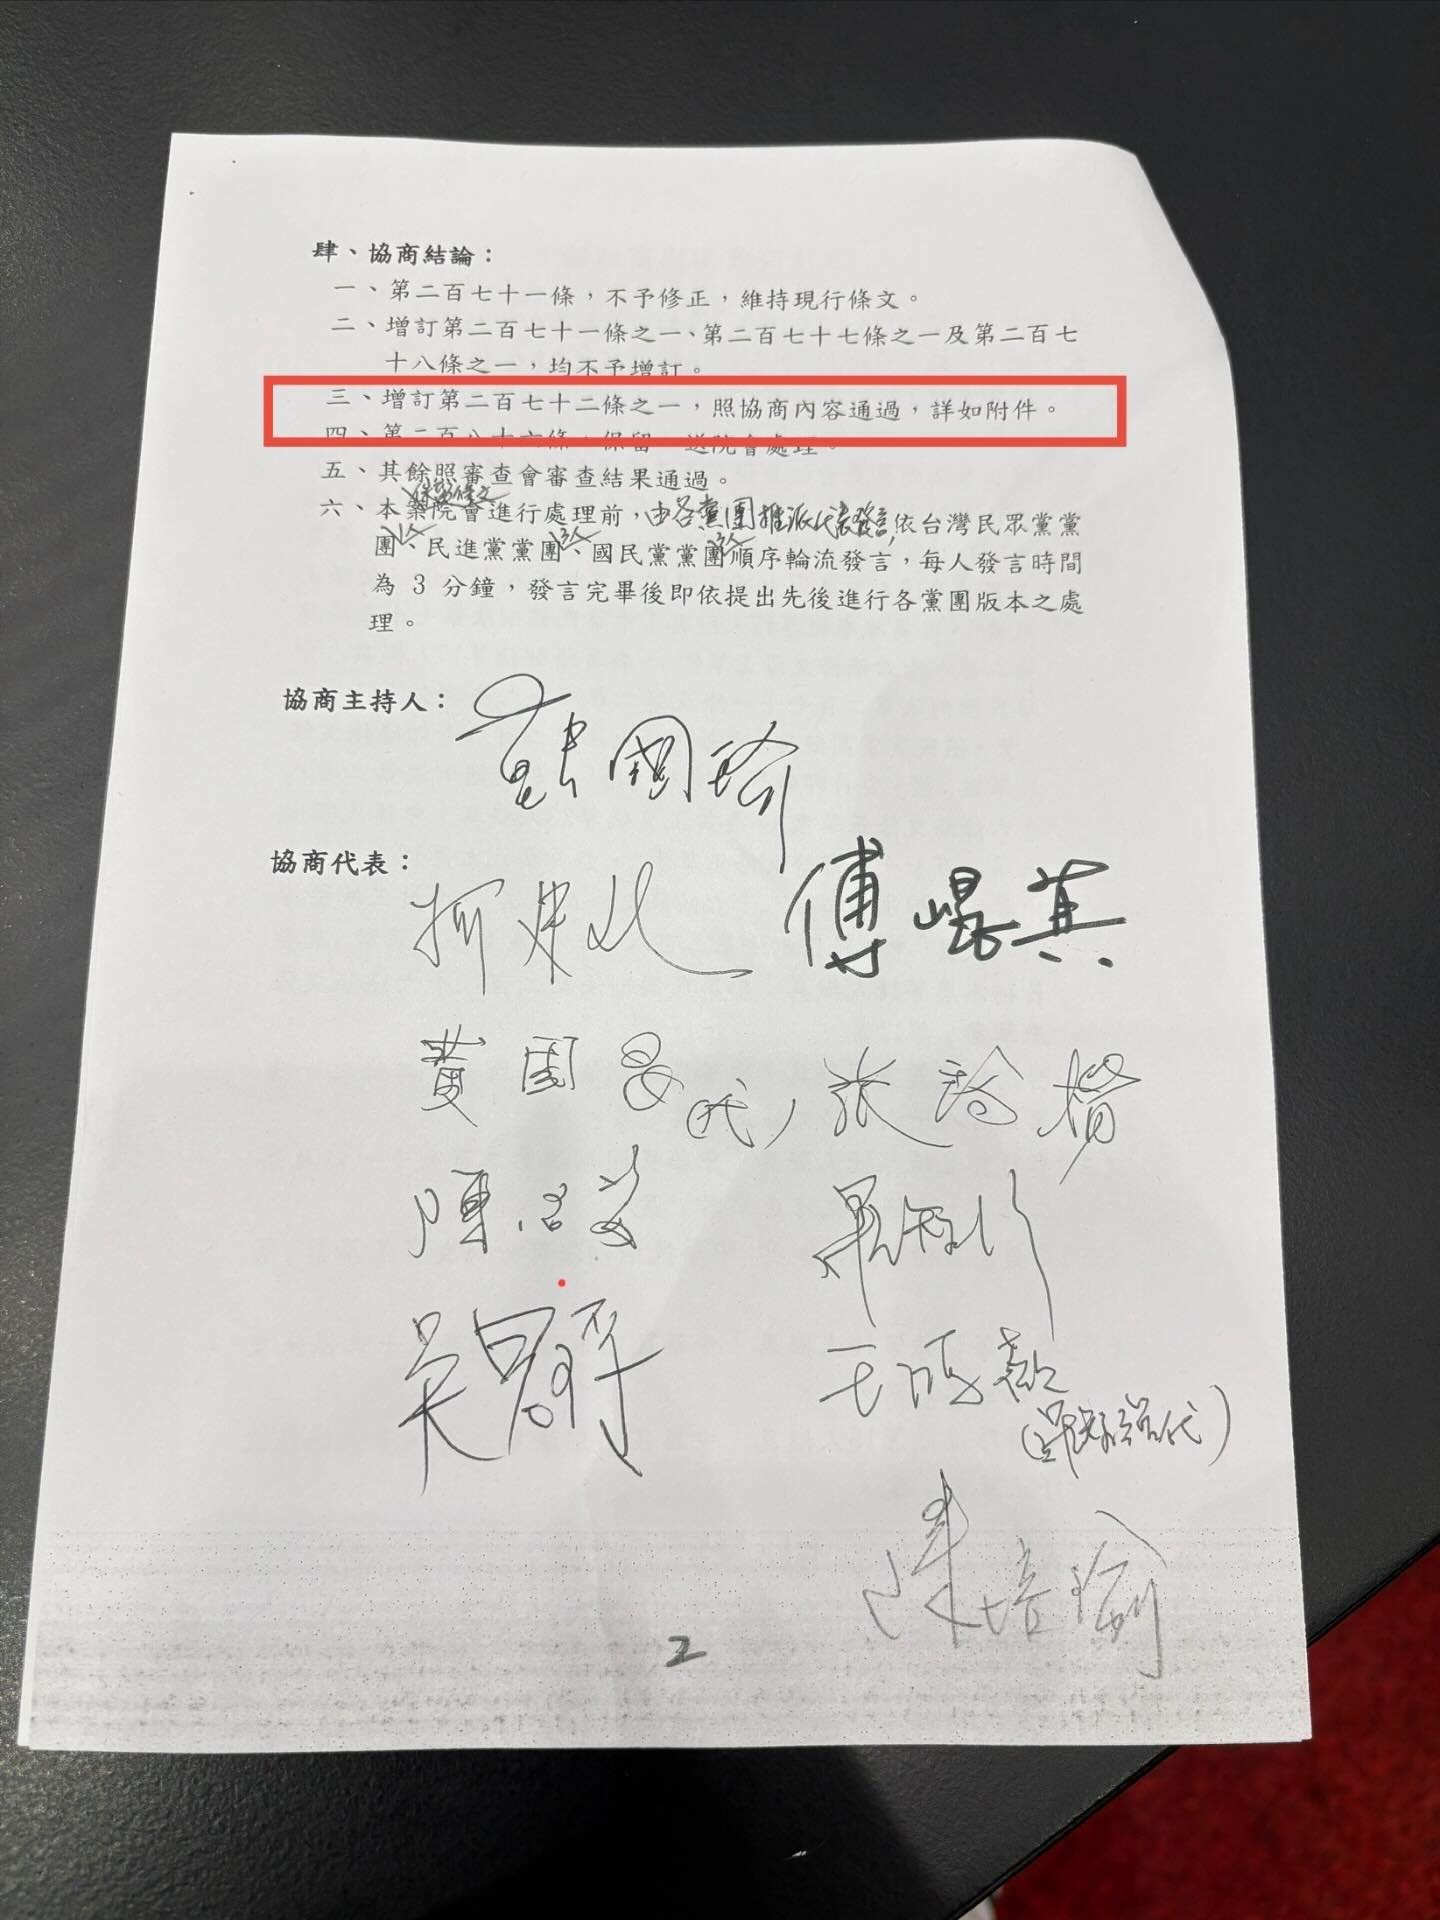 肆、協商結論：
一、第二百七十一條，不予修正，維持現行條文。
二、增訂第二百七十一條之一、第二百七十七條之一及第二百七
十八條之一，均不予增訂。
三、增訂第二百七十二條之一，照協商內容通過，詳如附件。
四、第二百八十六條，保留，送院會處理。
五、其餘照審查會審查結果通過。
保留條文
六、本案院會進行處理前，由各黨團推派代表發言，依台灣民眾黨黨
團、民進黨黨團、國民黨黨團順序輪流發言，每人發言時間
為 3 分鐘，發言完畢後即依提出先後進行各黨團版本之處
理。
協商主持人：
韓國瑜
協商代表：
柯建銘 傅崐萁
黃國昌(代)
陳
吳
王鴻薇
代)
陳培瑜
2